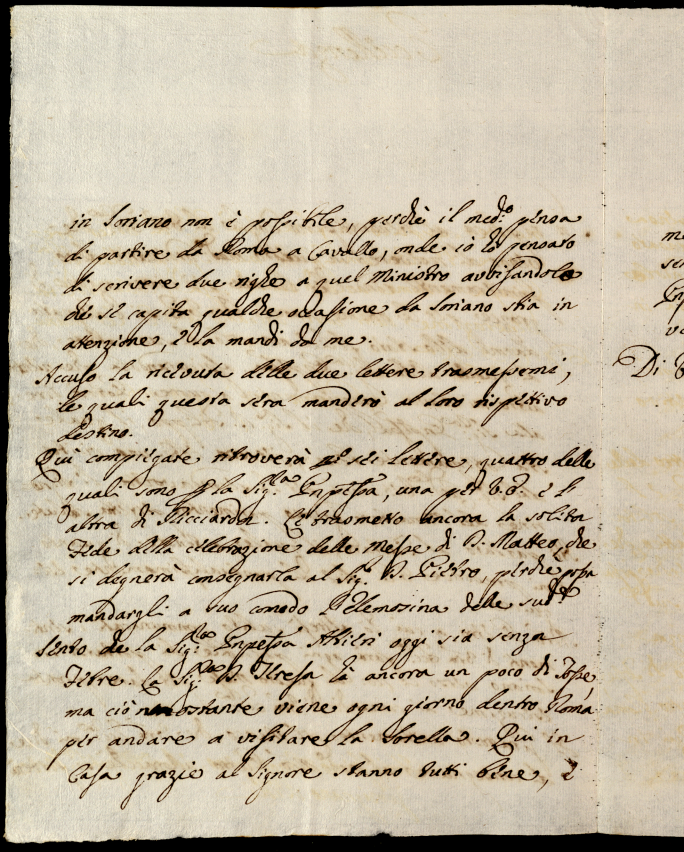 in Soriano non è possibile, perchè il med.º pensa
di partire da Roma a Cavallo, onde io hò pensato
di scrivere due righe a quel Ministro avvisandolo
che se capita qualche occasione da Soriano stia in
attenzione, e la mandi da me.
Accuso la ricevuta delle due lettere trasmessemi,
le quali questa sera manderò al loro rispettivo
destino.
Quì compiegate ritroverà nº sei lettere, quattro delle
quali sono p la Sig.ra Pnpessa, una per V.E. e l'
altra di Ricciarda. Le trasmetto ancora la solita
Fede della celebrazione delle Messe di D. Matteo, che
si degnerà consegnarla al Sig.r D. Pietro, perchè possa
mandargli a suo comodo l'elemosina delle sud.e
Sento che la Sig.ra Pnpessa Altieri oggi sia senza
Febre. La Sig.ra D. Teresa hà ancora un poco di Tosse,
ma ciò nonostante viene ogni giorno dentro Roma
per andare a visitare la Sorella. Qui in
Casa grazie al Signore stanno tutti bene, e
Di V